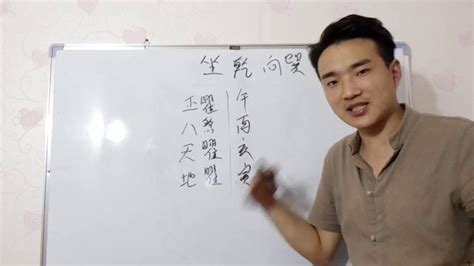 坐乾向巽
正曜 午
八煞 酉
天曜 亥
地曜 寅